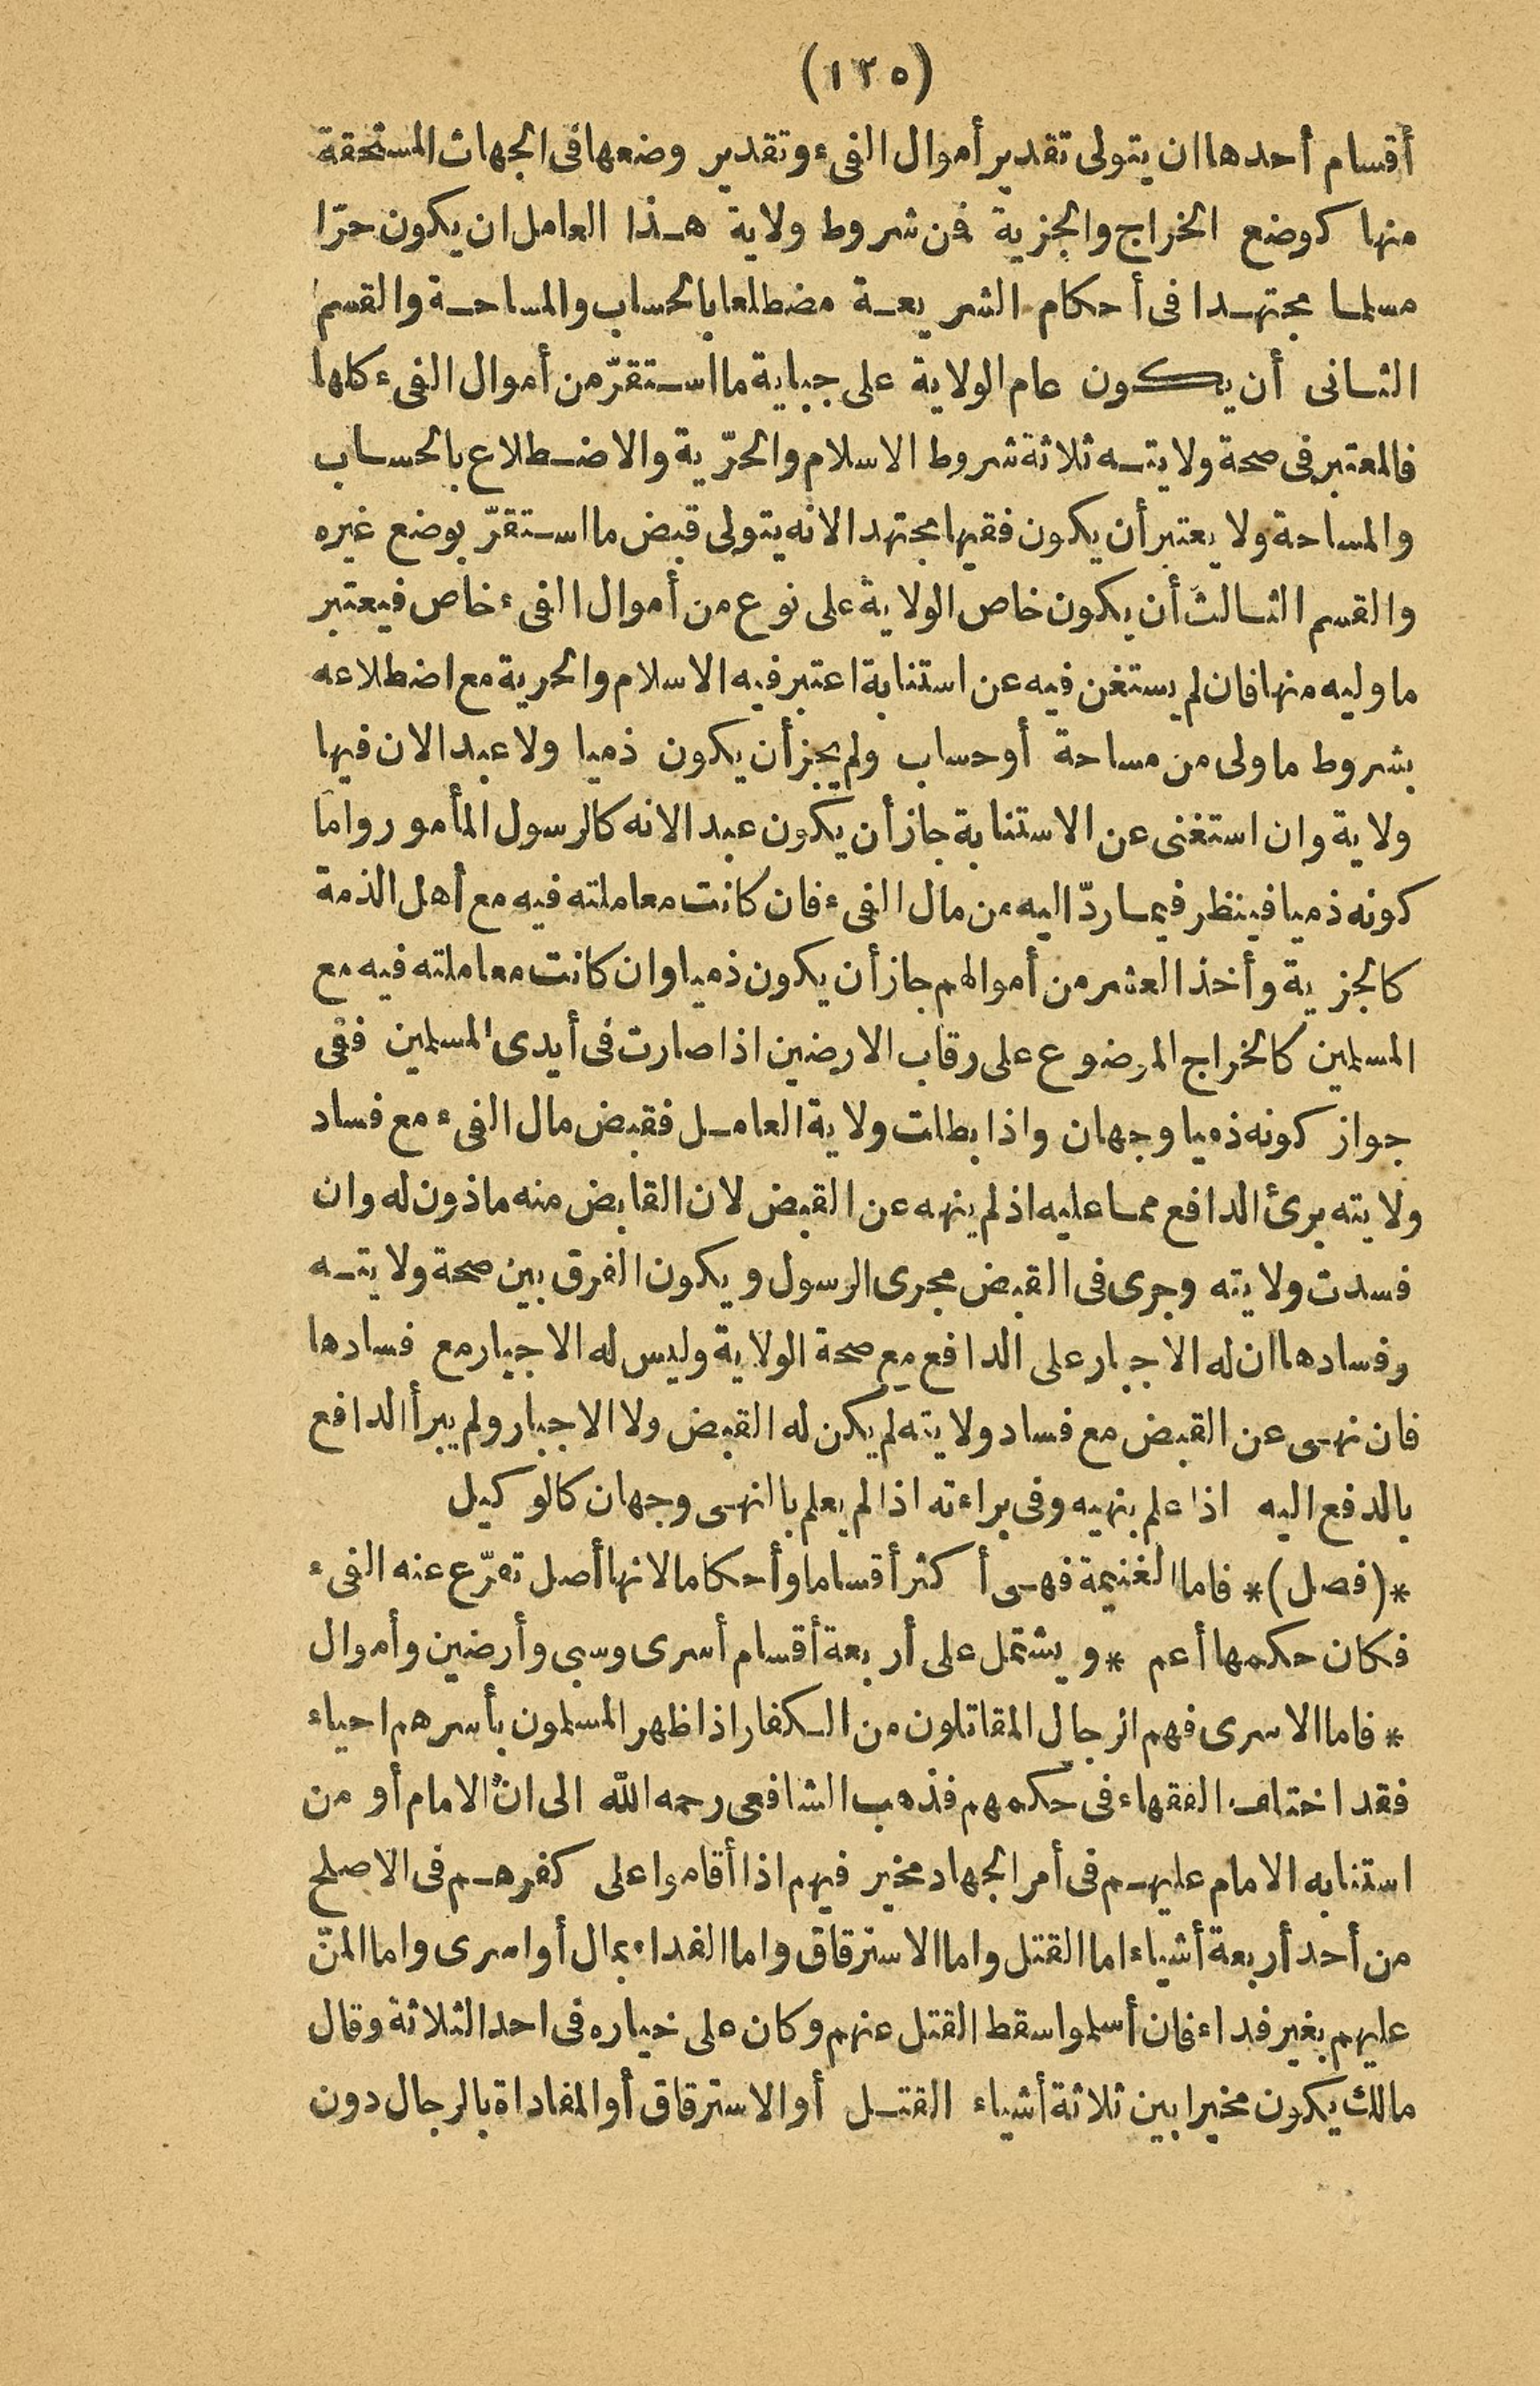 (١٢٥)
أقسام أحدها ان يتولى تقدير أموال الفىء وتقدير وضعها فى الجهات المستحقة
منها كوضع الخراج والجزية فمن شروط ولاية هذا العامل ان يكون حرّا
مسلما مجتهدا فى أحكام الشريعة مضطلعا بالحساب والمساحة والقسم
الثانى أن يكون عام الولاية على جباية ما استقرّ من أموال الفىء كلها
فالمعتبر فى صحة ولايته ثلاثة شروط الاسلام والحرّية والاضطلاع بالحساب
والمساحة ولا يعتبر أن يكون فقيها مجتهدا لانه يتولى قبض ما استقرّ بوضع غيره
والقسم الثالث أن يكون خاص الولاية على نوع من أموال الفىء خاص فيعتبر
ما وليه منها فان لم يستغن فيه عن استنابة اعتبر فيه الاسلام والحرية مع اضطلاعه
بشروط ما ولى من مساحة أو حساب ولم يجز أن يكون ذميا ولا عبدا لان فيها
ولاية وان استغنى عن الاستنابة جاز أن يكون عبدا لانه كالرسول المأمور واما
كونه ذميا فينظر فيما ردّ اليه من مال الفىء فان كانت معاملته فيه مع أهل الذمة
كالجزية وأخذ العشر من أموالهم جاز أن يكون ذميا وان كانت معاملته فيه مع
المسلمين كالخراج الموضوع على رقاب الارضين اذا صارت فى أيدى المسلمين ففى
جواز كونه ذميا وجهان واذا بطلت ولاية العامل فقبض مال الفىء مع فساد
ولايته برئ الدافع مما عليه اذ لم ينهه عن القبض لان القابض منه ماذون له وان
فسدت ولايته وجرى فى القبض مجرى الرسول ويكون الفرق بين صحة ولايته
وفسادها ان له الاجبار على الدافع مع صحة الولاية وليس له الاجبار مع فسادها
فان نهى عن القبض مع فساد ولايته لم يكن له القبض ولا الاجبار ولم يبرأ الدافع
بالدفع اليه اذا علم بنهيه وفى براءته اذا لم يعلم با انهى وجهان كالوكيل
*(فصل)* فاما الغنيمة فهى أكثر أقساما وأحكاما لانها أصل تفرّع عنه الفىء
فكان حكمها أعم * ويشتمل على أربعة أقسام أسرى وسبى وأرضين وأموال
* فاما الاسرى فهم الرجال المقاتلون من الكفار اذا ظهر المسلمون بأسرهم احياء
فقد اختلف الفقهاء فى حكمهم فذهب الشافعى رحمه الله الى ان الامام أو من
استنابه الامام عليهم فى أمر الجهاد مخير فيهم اذا أقاموا على كفرهم فى الاصلح
من أحد أربعة أشياء اما القتل واما الاسترقاق واما الفداء بمال أو اسرى واما المنّ
عليهم بغير فداء فان أسلموا سقط القتل عنهم وكان على خياره فى احد الثلاثة وقال
مالك يكون مخيرا بين ثلاثة أشياء القتل أو الاسترقاق أو المفاداة بالرجال دون